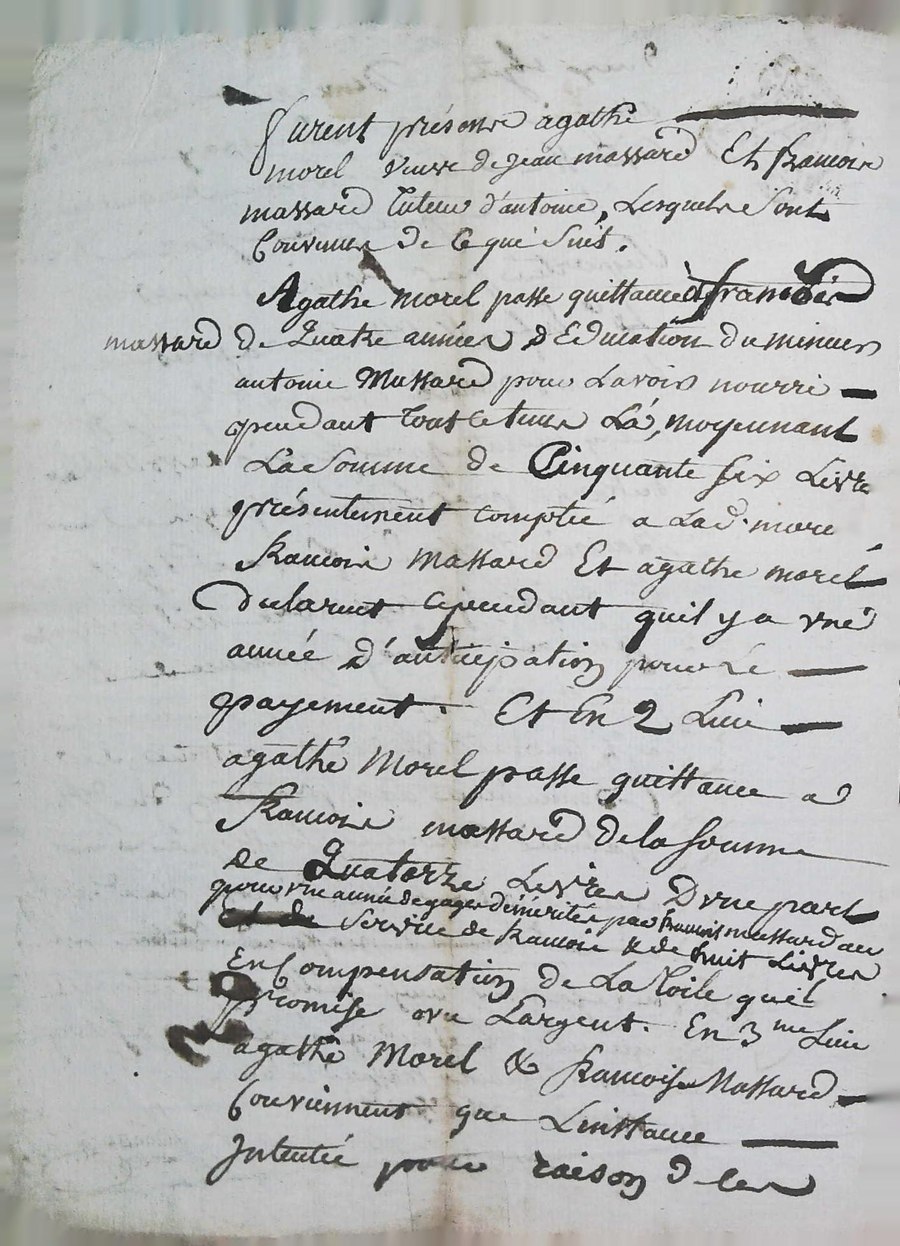 furent présents agathe
morel veuve de jean massard Et francois
massard tuteur d'antoine, Lesquels sont
Convenus de Ce qui suit.
Agathe morel passe quittance à francois
massard de Quatre années d'Education du mineur
antoine Massard pour Lavoir nourri
pendant tout ce tems Là, moyennant
La somme de Cinquante six Livres
présentement comptée a Lad. morel
francois Massard Et agathe morel
declarent cependant quil y a une
année d'anticipation pour le
payement. Et En 2 Lieu
agathe Morel passe quittance a
francois massard de la somme
de Quatorze Livres D'une part
pour une année de gages démérités par francois massard au
service de francois & de huit Livres
En Compensation de La toile quil
promise ou L'argent. En 3me Lieu
agathe Morel & francois Massard
Conviennent que L'instance
Intentée pour raison de les